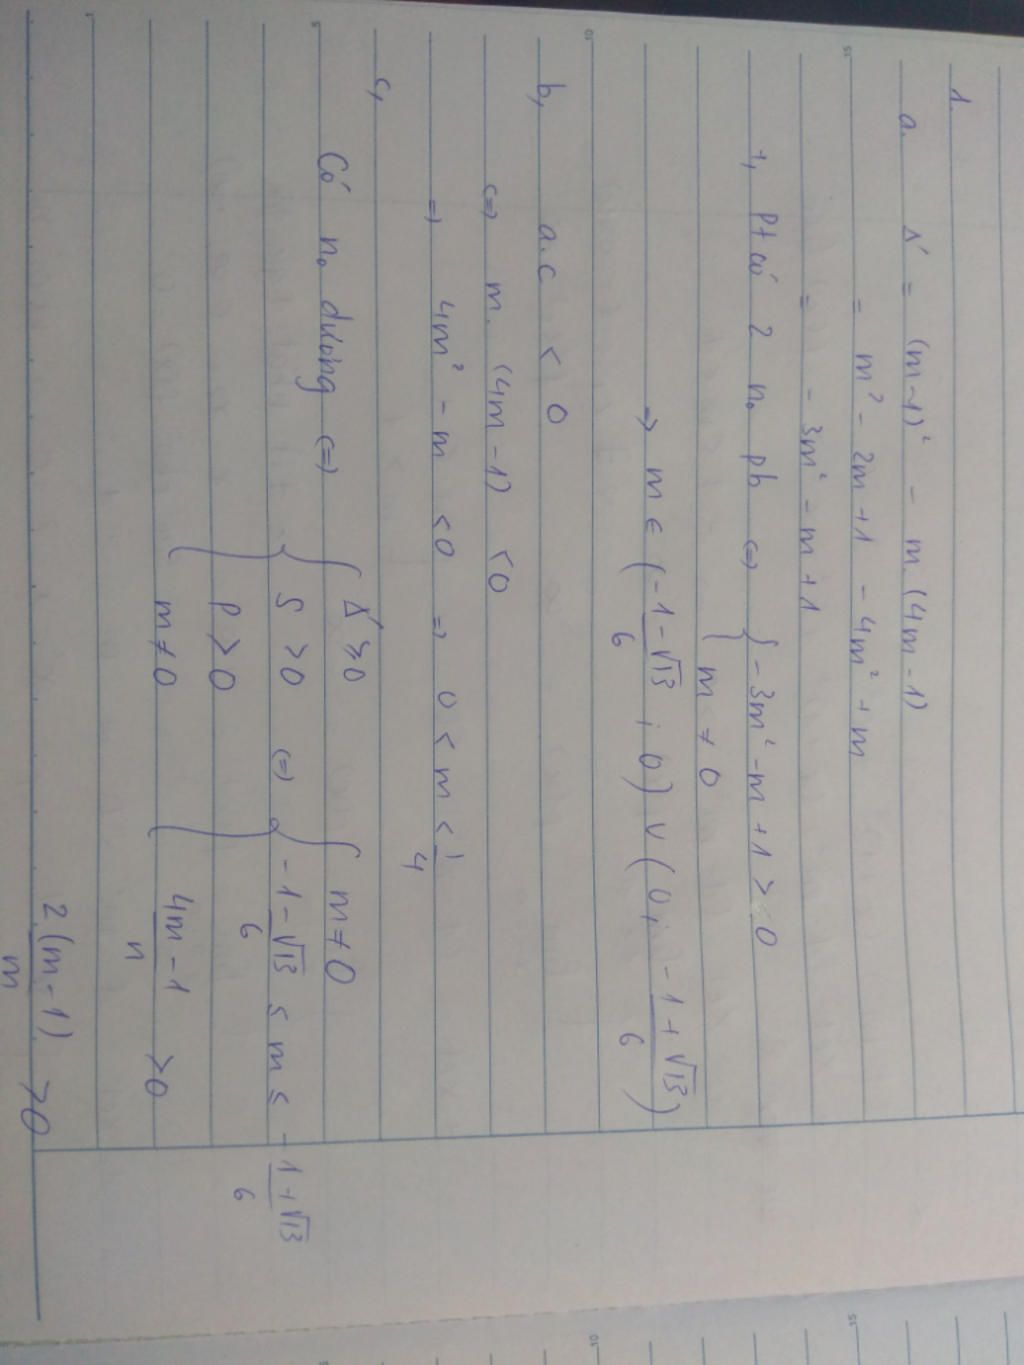 1.
a. Δ' = (m-1)² - m.(4m-1)
= m² - 2m+1 - 4m² + m
= - 3m² - m + 1
+, Pt có 2 n₀ pb ⇔ { - 3m² - m + 1 > 0
m ≠ 0
→ m ∈ ( (-1-√13)/6 ; 0) ∪ (0 ; (-1+√13)/6 )
b, a.c < 0
⇔ m. (4m-1) < 0
⇒ 4m² - m < 0 ⇒ 0 < m < 1/4
c,
Có n₀ dương ⇔ { Δ' ≥ 0
S > 0
P > 0
m ≠ 0
⇔ { m ≠ 0
(-1-√13)/6 ≤ m ≤ (-1+√13)/6
(4m-1)/n > 0
2(m-1)/m > 0
5
10
15
10
15